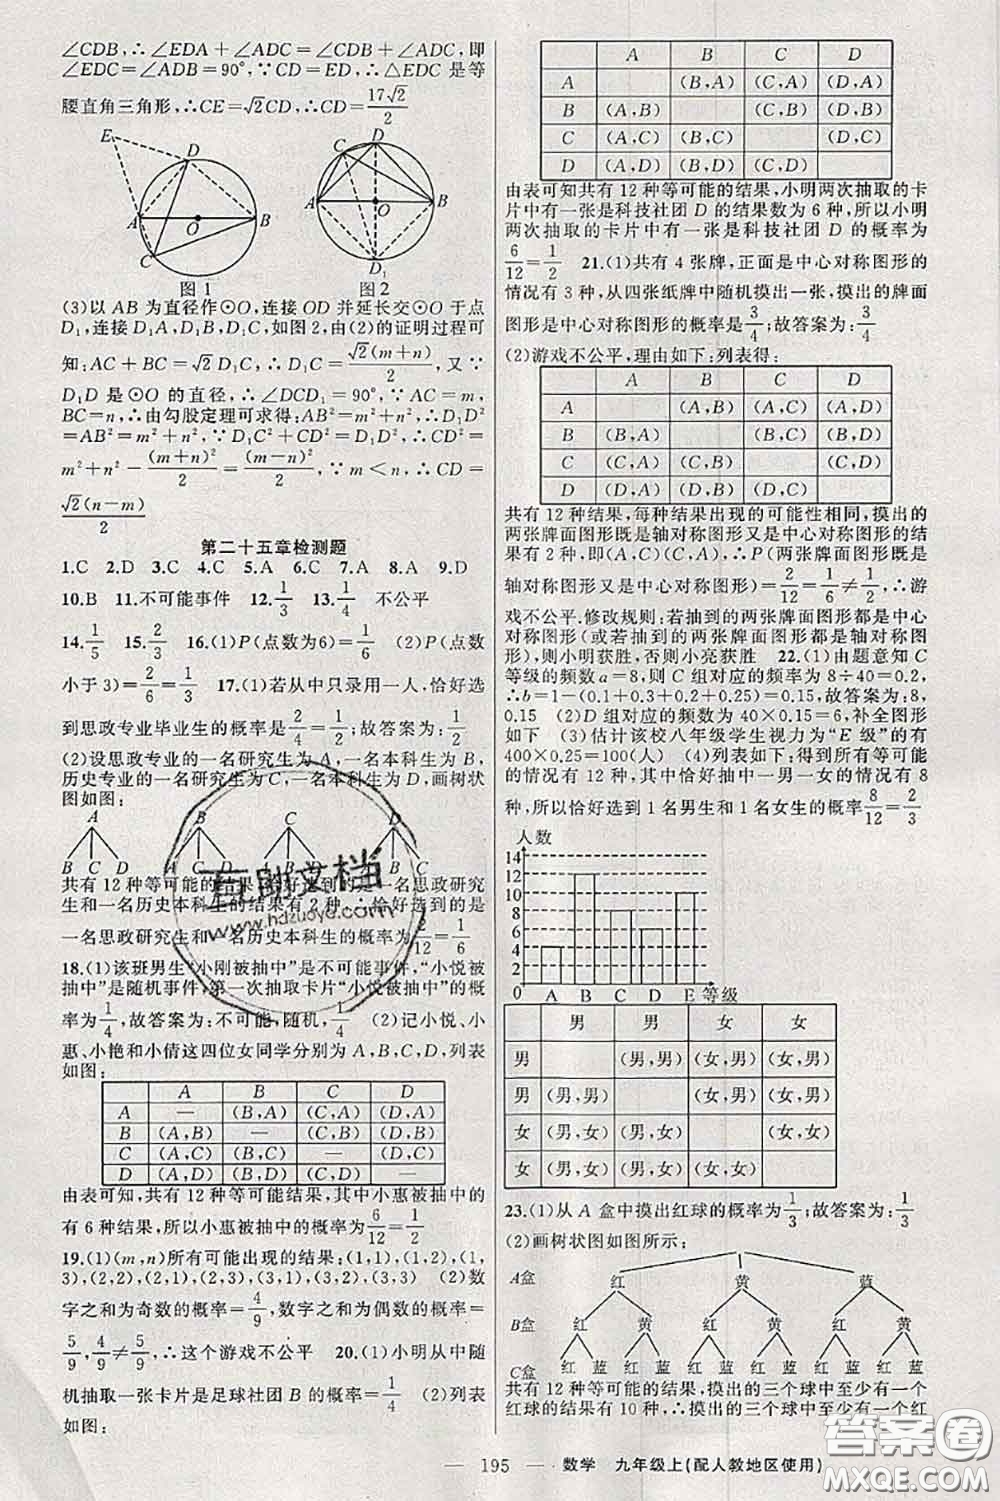 ∠CDB,∴∠EDA+∠ADC=∠CDB+∠ADC,即
∠EDC=∠ADB=90°,∵CD=ED,∴△EDC 是等
腰直角三角形,∴CE=√2CD,∴CD=17√2/2
E
D
A
O
B
C
图1
C
D
A
O
B
D₁
图2
(3)以 AB 为直径作⊙O,连接 OD 并延长交⊙O 于点
D₁,连接 D₁A,D₁B,D₁C,如图2,由(2)的证明过程可
知:AC+BC=√2 D₁C,∴D₁C=√2(m+n)/2,又∵
D₁D 是⊙O 的直径,∴∠DCD₁=90°,∵AC=m,
BC=n,∴由勾股定理可求得:AB²=m²+n²,∴D₁D²
=AB²=m²+n²,∵D₁C²+CD²=D₁D²,∴CD²=
m²+n²-(m+n)²/2=(m-n)²/2,∵m<n,∴CD=
√2(n-m)/2
第二十五章检测题
1.C 2.D 3.C 4.C 5.A 6.C 7.A 8.A 9.D
10.B 11.不可能事件 12.1/3 13.1/4 不公平
14.1/5 15.2/3 16.(1)P(点数为6)=1/6 (2)P(点数
小于3)=2/6=1/3 17.(1)若从中只录用一人,恰好选
到思政专业毕业生的概率是2/4=1/2;故答案为:1/2
(2)设思政专业的一名研究生为A,一名本科生为B,
历史专业的一名研究生为C,一名本科生为D,画树状
图如图:
A B C D
B C D A C D A B D A B C
共有12种等可能的结果,恰好选到的是一名思政研究
生和一名历史本科生的结果有2种,∴恰好选到的是
一名思政研究生和一名历史本科生的概率为2/12=1/6
18.(1)该班男生“小刚被抽中”是不可能事件,“小悦被
抽中”是随机事件,第一次抽取卡片“小悦被抽中”的概
率为1/4,故答案为:不可能,随机,1/4 (2)记小悦、小
惠、小艳和小倩这四位女同学分别为A,B,C,D,列表
如图:
A B C D
A — (B,A) (C,A) (D,A)
B (A,B) — (C,B) (D,B)
C (A,C) (B,C) — (D,C)
D (A,D) (B,D) (C,D) —
由表可知,共有12种等可能结果,其中小惠被抽中的
有6种结果,所以小惠被抽中的概率为6/12=1/2
19.(1)(m,n)所有可能出现的结果:(1,1),(1,2),(1,
3),(2,2),(2,1),(2,3),(3,1),(3,2),(3,3) (2)数
字之和为奇数的概率=4/9,数字之和为偶数的概率=
5/9,4/9≠5/9,∴这个游戏不公平 20.(1)小明从中随
机抽取一张卡片是足球社团B的概率=1/4 (2)列表
如图:
A B C D
A (B,A) (C,A) (D,A)
B (A,B) (C,B) (D,B)
C (A,C) (B,C) (D,C)
D (A,D) (B,D) (C,D)
由表可知共有12种等可能的结果,小明两次抽取的卡
片中有一张是科技社团D的结果数为6种,所以小明
两次抽取的卡片中有一张是科技社团D的概率为
6/12=1/2 21.(1)共有4张牌,正面是中心对称图形的
情况有3种,从四张纸牌中随机摸出一张,摸出的牌面
图形是中心对称图形的概率是3/4;故答案为:3/4
(2)游戏不公平,理由如下:列表得:
A B C D
A (A,B) (A,C) (A,D)
B (B,A) (B,C) (B,D)
C (C,A) (C,B) (C,D)
D (D,A) (D,B) (D,C)
共有12种结果,每种结果出现的可能性相同,摸出的
两张牌面图形既是轴对称图形又是中心对称图形的结
果有2种,即(A,C)(C,A),∴P(两张牌面图形既是
轴对称图形又是中心对称图形)=2/12=1/6≠1/2,∴游
戏不公平.修改规则:若抽到的两张牌面图形都是中心
对称图形(或若抽到的两张牌面图形都是轴对称图
形),则小明获胜,否则小亮获胜 22.(1)由题意知C
等级的频数a=8,则C组对应的频率为8÷40=0.2,
∴b=1-(0.1+0.3+0.2+0.25)=0.15,故答案为:8,
0.15 (2)D组对应的频数为40×0.15=6,补全图形
如下 (3)估计该校八年级学生视力为“E级”的有
400×0.25=100(人) (4)列表如下:得到所有等可能
的情况有12种,其中恰好抽中一男一女的情况有8
种,所以恰好选到1名男生和1名女生的概率8/12=2/3
人数
14
12
10
8
6
4
2
0 A B C D E 等级
男 男 女 女
男 (男,男) (女,男) (女,男)
男 (男,男) (女,男) (女,男)
女 (男,女) (男,女) (女,女)
女 (男,女) (男,女) (女,女)
23.(1)从A盒中摸出红球的概率为1/3;故答案为:1/3
(2)画树状图如图所示:
A盒 红 黄 蓝
B盒 红 黄 红 黄 红 黄
C盒 红 蓝 红 蓝 红 蓝 红 蓝 红 蓝 红 蓝
共有12种等可能的结果,摸出的三个球中至少有一个
红球的结果有10种,∴摸出的三个球中至少有一个红
— 195 — 数学 九年级上(配人教地区使用)
互助文档
www.hdzuoye.com
答案圈
MXQE.COM